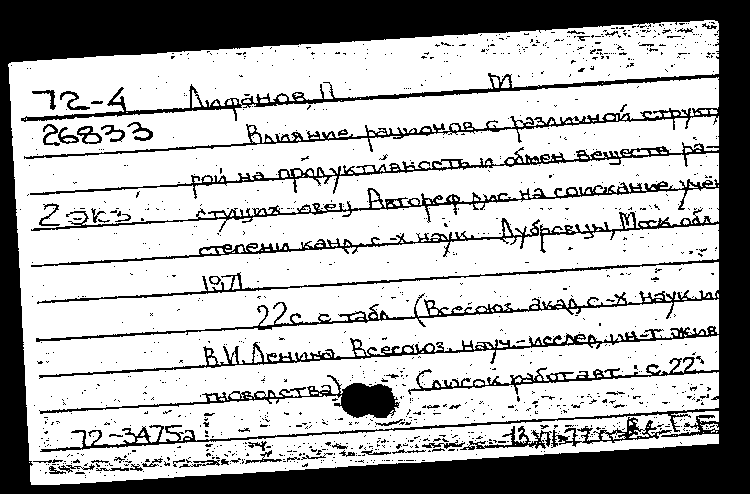 72-4 Лифанов, П М
26833 Влияние рационов с различной структу
рой на продуктивность и обмен веществ ра-
2 экз. стущих овец. Автореф. дис. на соискание учён
степени канд. с.-х. наук. Дубровицы, Моск. обл.
1971.
22 с. с табл. (Всесоюз. акад. с.-х. наук им
В.И. Ленина. Всесоюз. науч.-исслед. ин-т жив
тноводства)
Список работ авт.: с. 22
72-3475а 13 XII-72 г.